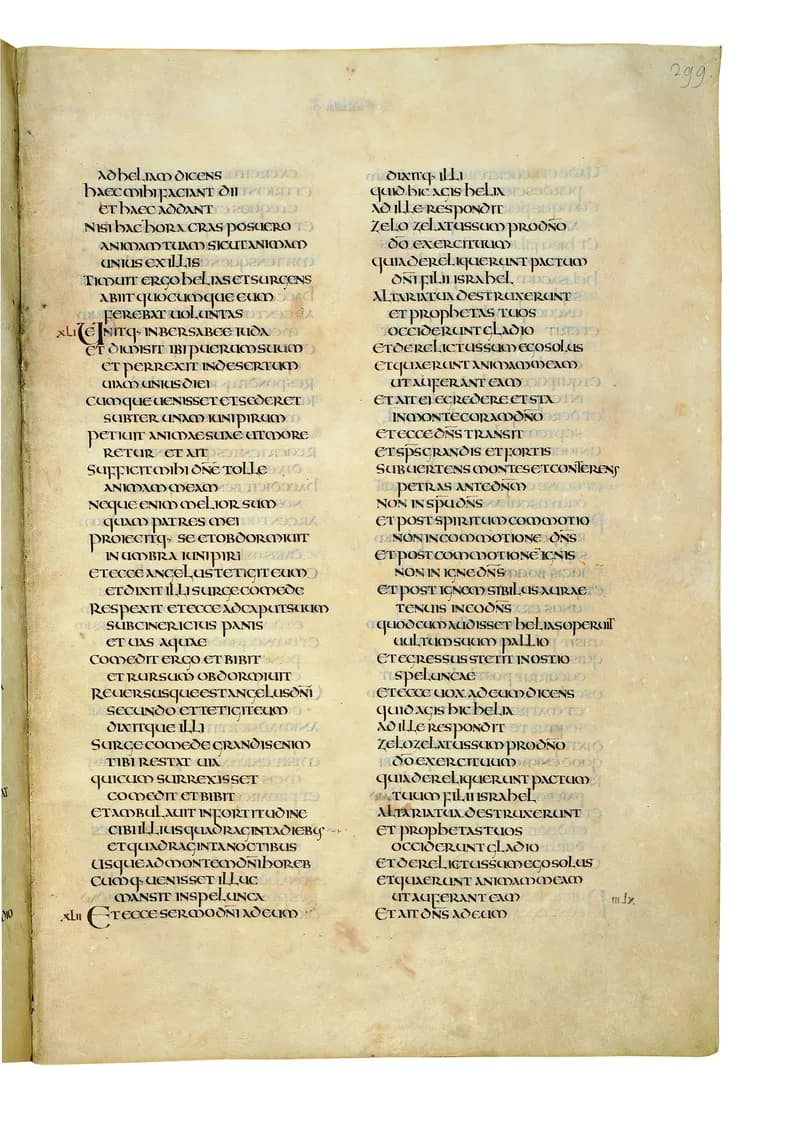 299
ad heliam dicens
haec mihi faciant dii
et haec addant
nisi hac hora cras posuero
animam tuam sicut animam
unius ex illis
timuit ergo helias et surgens
abiit quocumque eum
ferebat uoluntas
xli uenitq· in bersabee iuda
et dimisit ibi puerum suum
et perrexit in desertum
uiam unius diei
cumque uenisset et sederet
subter unam iunipirum
petiuit animae suae ut more
retur et ait
sufficit mihi dn̄e tolle
animam meam
neque enim melior sum
quam patres mei
proiecitq· se et obdormiuit
in umbra iunipiri
et ecce angelus tetigit eum
et dixit illi surge comede
respexit et ecce ad caput suum
subcinericius panis
et uas aquae
comedit ergo et bibit
et rursum obdormiuit
reuersusque est angelus dn̄i
secundo et tetigit eum
dixitque illi
surge comede grandis enim
tibi restat uia
qui cum surrexisset
comedit et bibit
et ambulauit in fortitudine
cibi illius quadraginta dieb;
et quadraginta noctibus
usque ad montem dn̄i horeb
cumq· uenisset illuc
mansit in spelunca
xlii et ecce sermo dn̄i ad eum
dixitq· illi
quid hic agis helia
ad ille respondit
zelo zelatus sum pro dn̄o
dō exercituum
quia dereliquerunt pactum
dn̄i filii israhel
altaria tua destruxerunt
et prophetas tuos
occiderunt gladio
et derelictus sum ego solus
et quaerunt animam meam
ut auferant eam
et ait ei egredere et sta
in monte coram dn̄o
et ecce dn̄s transit
et sp̄s grandis et fortis
subuertens montes et conterens
petras ante dn̄m
non in sp̄u dn̄s
et post spiritum commotio
non in commotione dn̄s
et post commotionē ignis
non in igne dn̄s
et post ignem sibilus aurae
tenuis ineo dn̄s
quod cum audisset helias operuit
uultum suum pallio
et egressus stetit in ostio
speluncae
et ecce uox ad eum dicens
quid agis hic helia
ad ille respondit
zelo zelatus sum pro dn̄o
dō exercituum
quia dereliquerunt pactum
tuum filii israhel
altaria tua destruxerunt
et prophetas tuos
occiderunt gladio
et derelictus sum ego solus
et quaerunt animam meam
ut auferant eam
et ait dn̄s ad eum